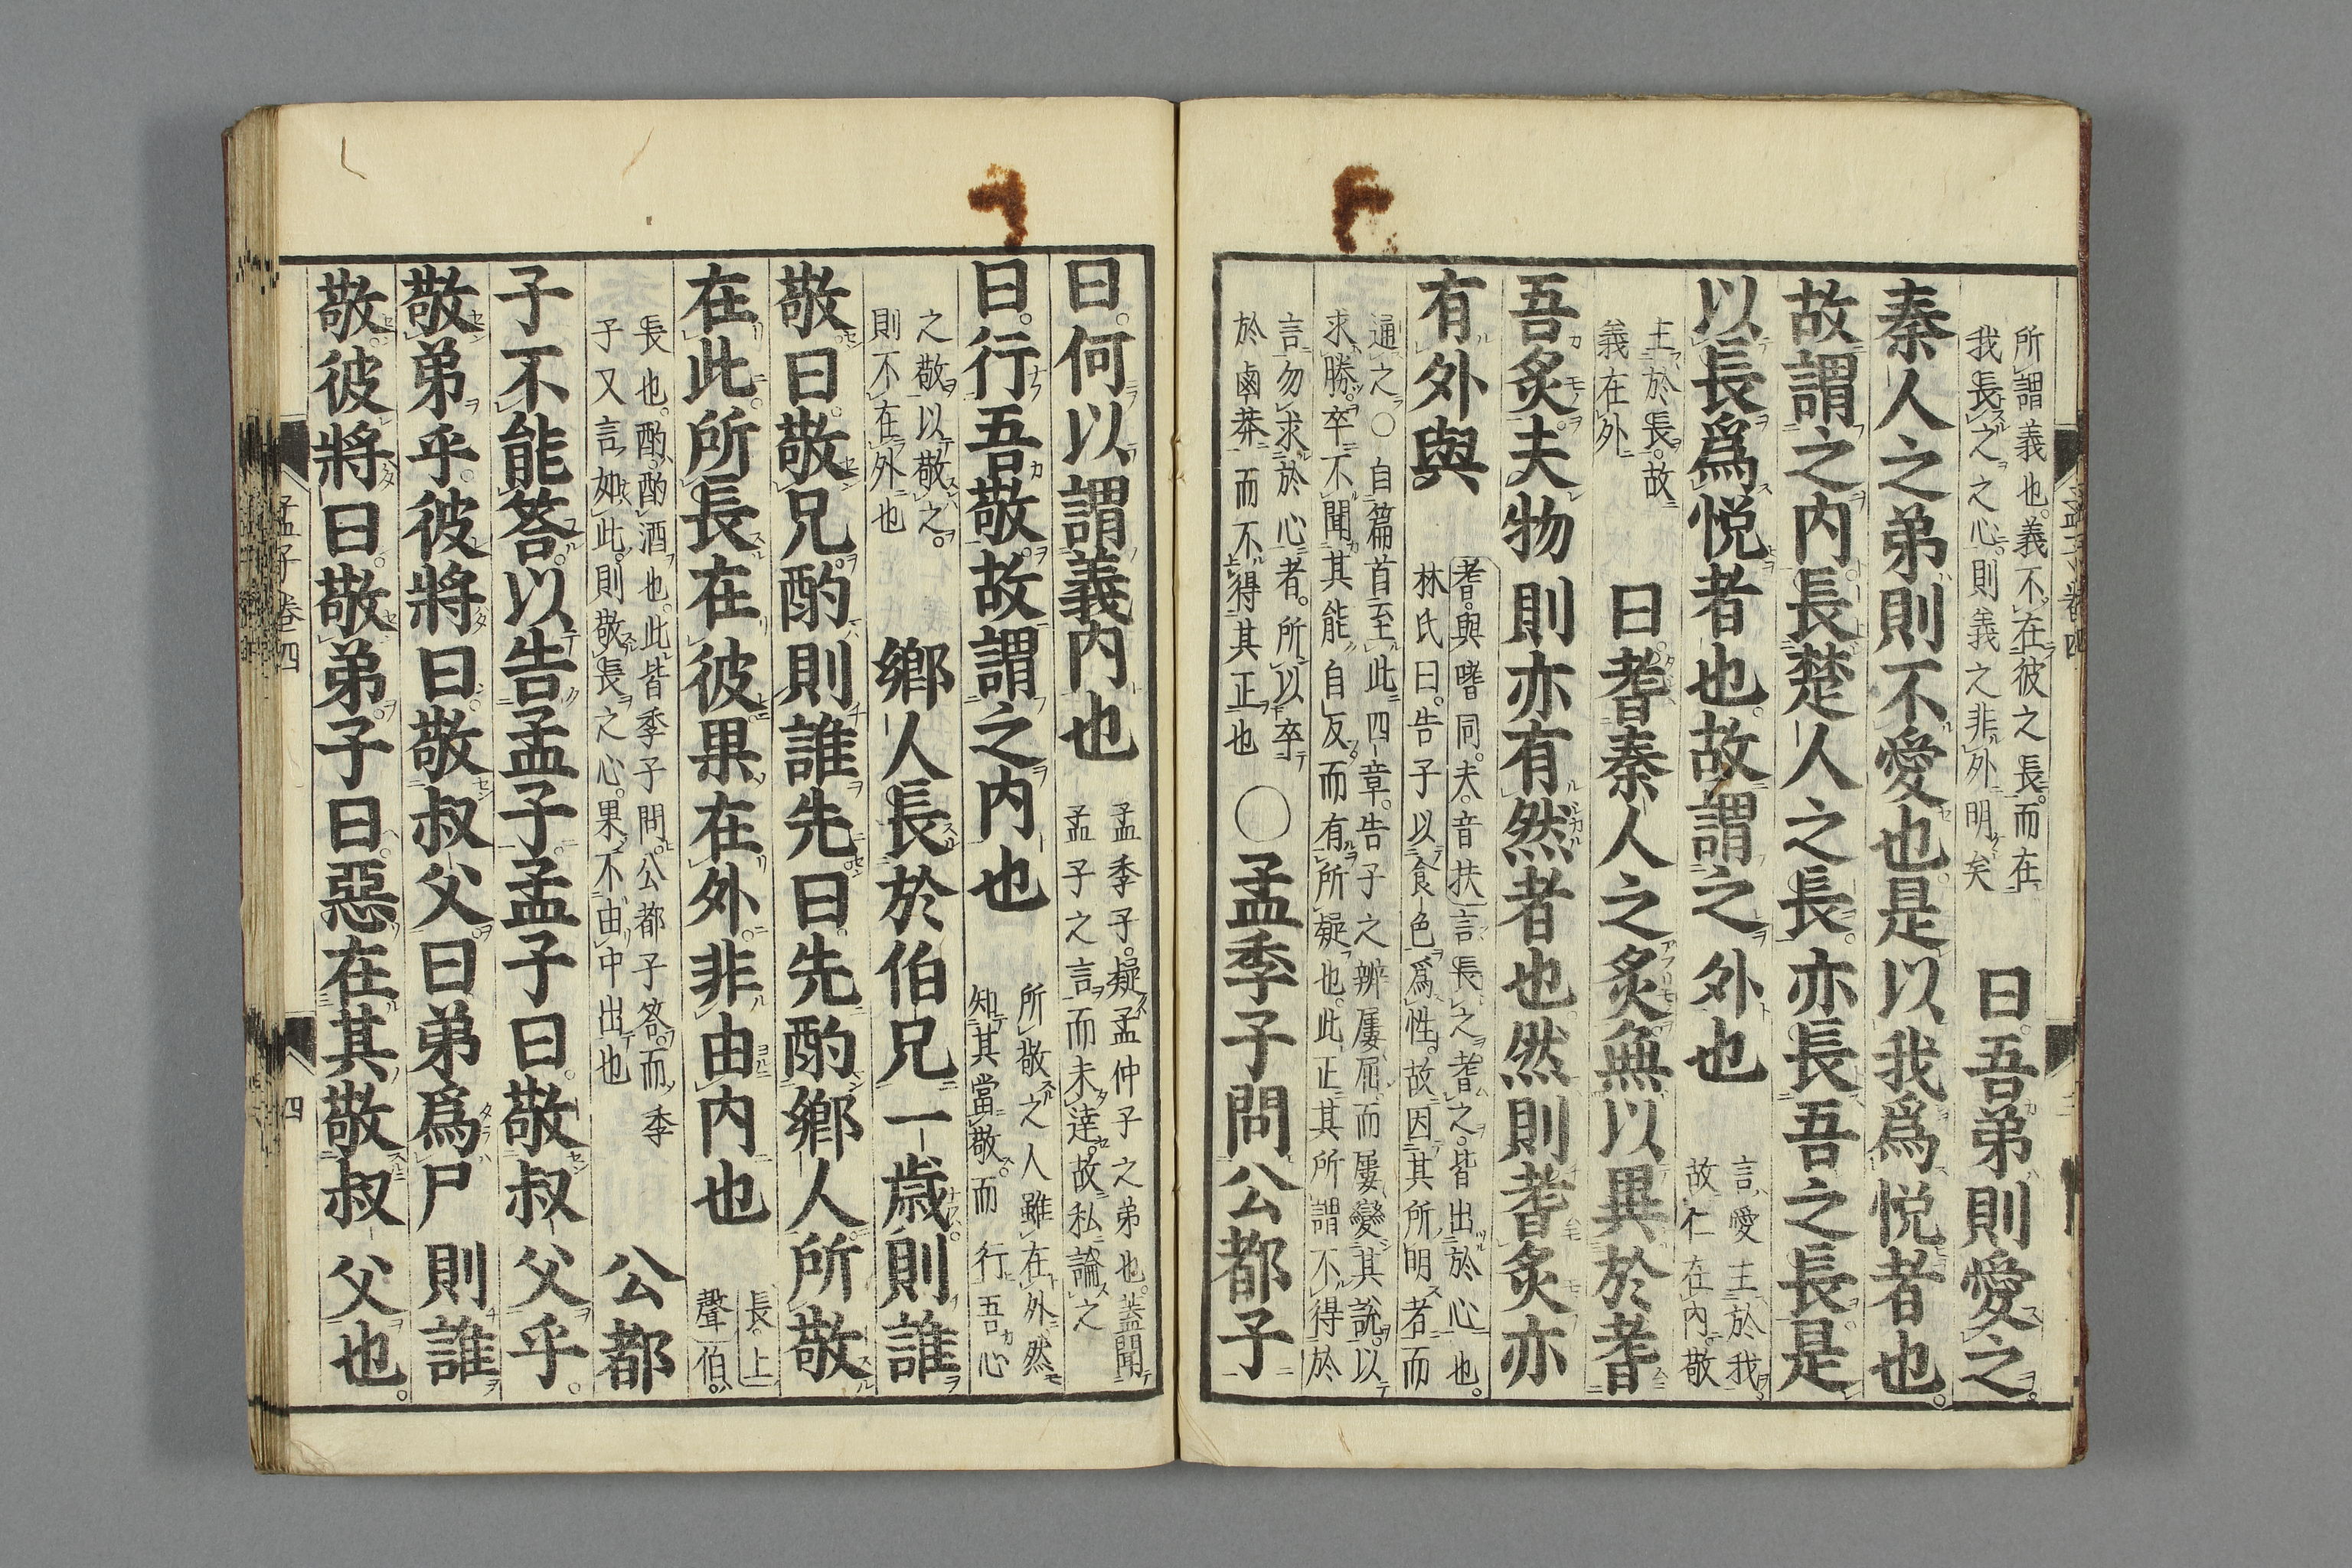 所謂義也。義不在彼之長。而在
我長之之心。則義之非外明矣
曰。吾弟則愛之。
秦人之弟則不愛也是以我爲悦者也。
故謂之内長楚人之長亦長吾之長是
以長爲悦者也。故謂之外也
言愛主於我。
故仁在内。敬
主於長。故
義在外
曰耆秦人之炙無以異於耆
吾炙夫物則亦有然者也然則耆炙亦
有外與
耆。與嗜同。夫。音扶 言長之耆之。皆出於心也。
林氏曰。告子以食色爲性。故因其所明者而
通之〇自篇首至此四章。告子之辨屢屈。而屢變其說。以
求勝。卒不聞其能自反。而有所疑也。此正其所謂不得於
言勿求於心者。所以卒
於鹵莽而不得其正也
〇孟季子問公都子
曰。何以謂義内也
孟季子。疑孟仲子之弟也。蓋聞
孟子之言而未達。故私論之
曰。行吾敬。故謂之内也
所敬之人雖在外。然
知其當敬。而行吾心
之敬以敬之。
則不在外也
鄉人長於伯兄一歳。則誰
敬曰。敬兄。酌則誰先曰。先酌鄉人。所敬
在此。所長在彼果在外。非由内也
長。上
聲 伯。
長也。酌。酌酒也。此皆季子問。公都子答。而季
子又言。如此。則敬長之心。果不由中出也
公都
子不能答。以告孟子。孟子曰。敬叔父乎。
敬弟乎。彼將曰。敬叔父。曰弟爲尸則誰
敬。彼將曰。敬弟。子曰。惡在其敬叔父也。
孟子卷四
四